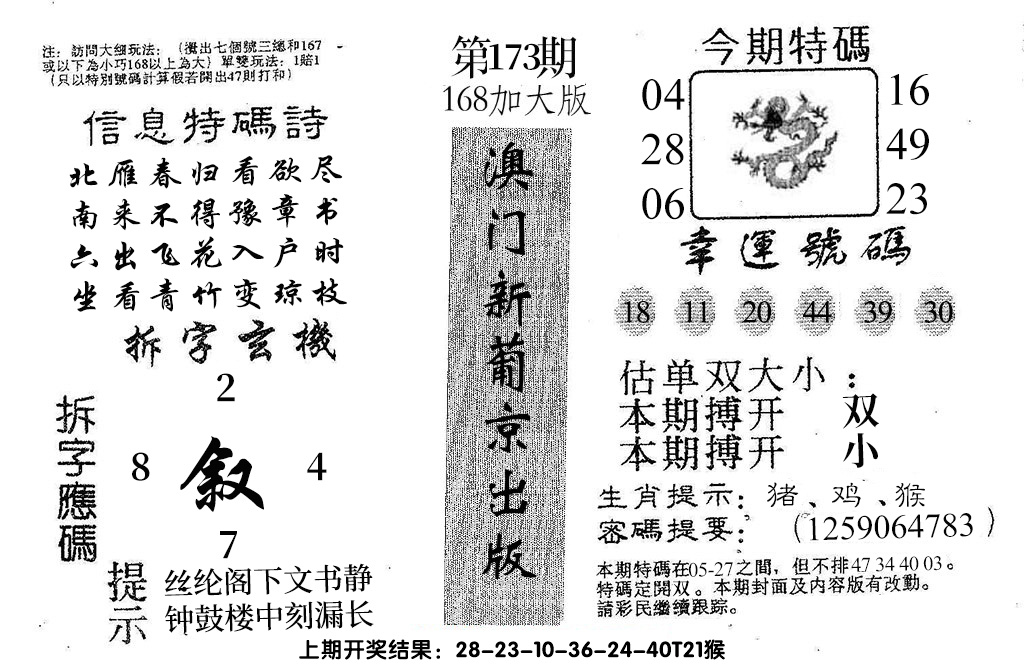 注：訪問大细玩法：（攪出七個號三總和167
或以下為小巧168以上為大）單雙玩法：1賠1
（只以特別號碼計算假若開出47則打和）
信息特碼詩
北雁春归看欲尽
南来不得豫章书
六出飞花入户时
坐看青竹变琼枝
拆字玄機
2
拆字應碼
8 叙 4
7
提示
丝纶阁下文书静
钟鼓楼中刻漏长
第173期
168加大版
澳门新葡京出版
今期特碼
04 16
28 49
06 23
幸運號碼
18 11 20 44 39 30
估单双大小：
本期搏开 双
本期搏开 小
生肖提示：猪、鸡、猴
密碼提要：（1259064783）
本期特碼在05-27之間，但不排47 34 40 03。
特碼定開双。本期封面及内容版有改動。
請彩民繼續跟踪。
上期开奖结果：28-23-10-36-24-40T21猴